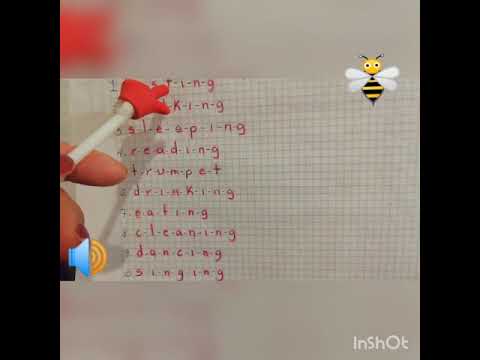 1. t-i-n-g
k-i-n-g
3. s-l-e-e-p-i-n-g
4. r-e-a-d-i-n-g
t-r-u-m-p-e-t
d-r-i-n-k-i-n-g
7. e-a-t-i-n-g
c-l-e-a-n-i-n-g
d-a-n-c-i-n-g
s-i-n-g-i-n-g
InShOt